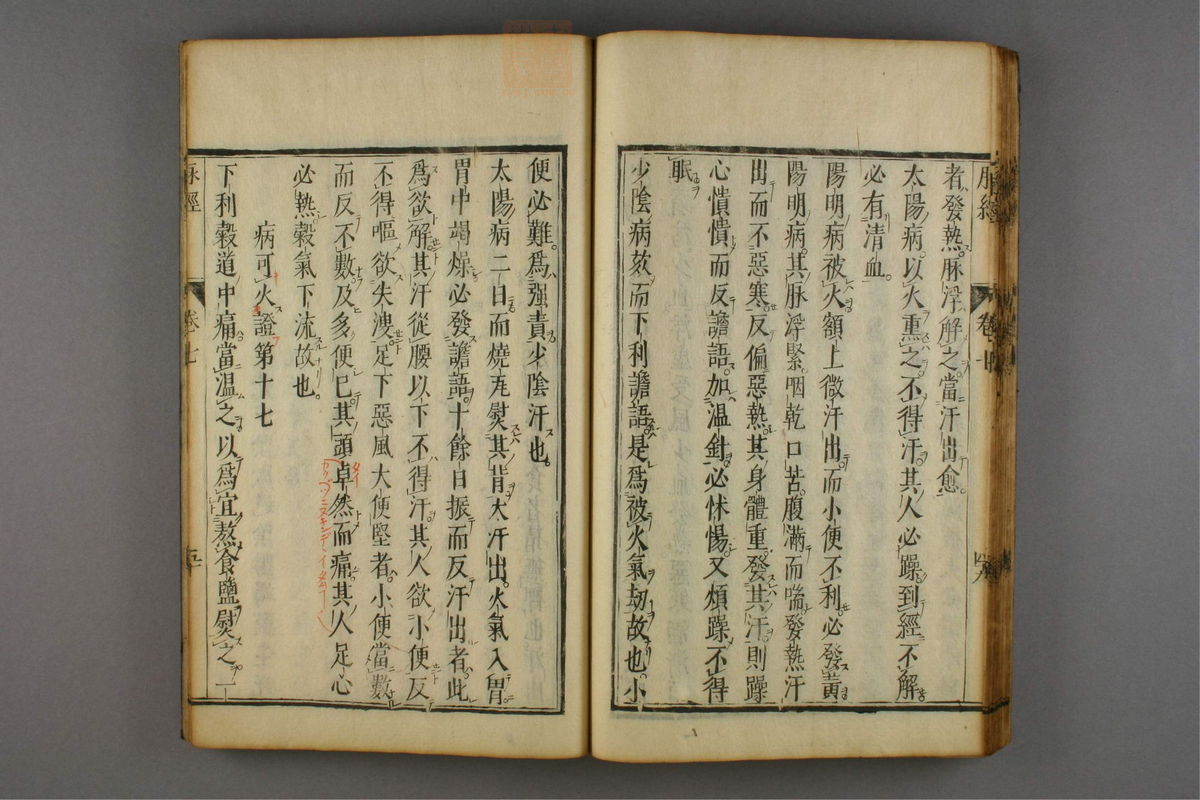 脉經
卷七
四九
者發熱脉浮解之當汗出愈。
太陽病。以火熏之。不得汗。其人必躁到經不解
必有清血。
陽明病被火額上微汗出。而小便不利。必發黃
陽明病。其脉浮緊咽乾口苦。腹滿而喘。發熱汗
出而不惡寒。反偏惡熱。其身體重。發其汗。則躁
心憒憒而反譫語。加温針。必怵惕。又煩躁不得
眠
少陰病欬而下利譫語。是爲被火氣劫故也。小
便必難。爲强責少陰汗也。
太陽病二日而燒瓦熨其背大汗出。火氣入胃。
胃中竭燥必發譫語。十餘日振而反汗出者。此
爲欲解其汗從腰以下不得汗。其人欲小便反
不得嘔欲失溲。足下惡風大便堅者。小便當數
而反不數。及多便已。其頭卓然而痛。其人足心
必熱穀氣下流故也。
病可火證第十七
下利穀道中痛。當温之以爲宜熬食鹽熨之一
脉經
卷七
五十